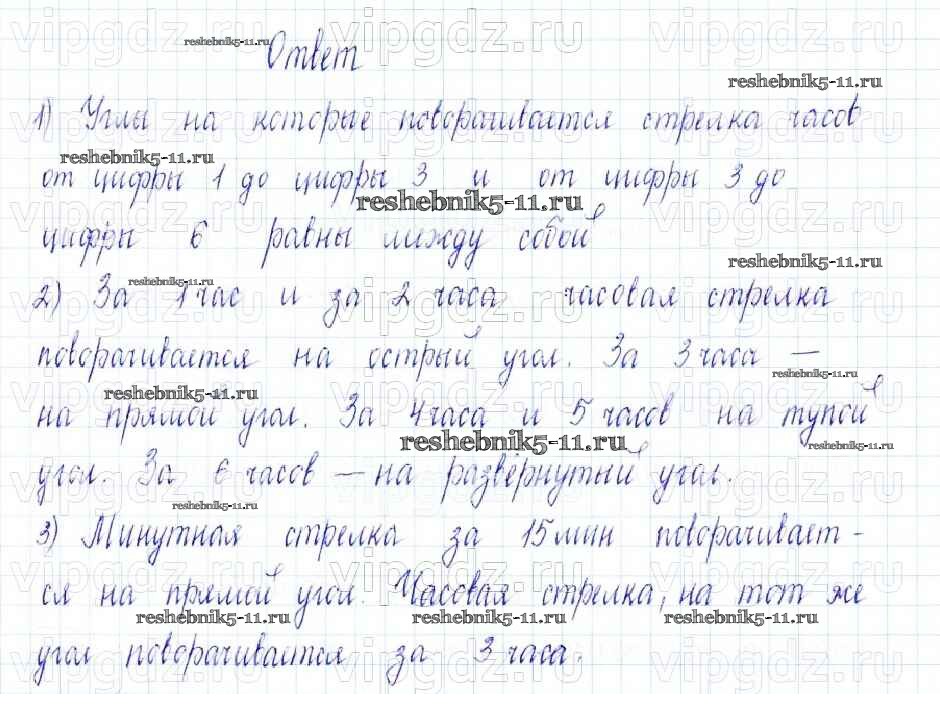 Ответ
1) Углы на которые поворачивается стрелка часов
от цифры 1 до цифры 3 и от цифры 3 до
цифры 6 равны между собой
2) За 1 час и за 2 часа часовая стрелка
поворачивается на острый угол. За 3 часа —
на прямой угол. За 4 часа и 5 часов на тупой
угол. За 6 часов — на развёрнутый угол.
3) Минутная стрелка за 15 мин поворачивает-
ся на прямой угол. Часовая стрелка, на тот же
угол поворачивается за 3 часа.
reshebnik5-11.ru
reshebnik5-11.ru
reshebnik5-11.ru
reshebnik5-11.ru
reshebnik5-11.ru
reshebnik5-11.ru
reshebnik5-11.ru
reshebnik5-11.ru
reshebnik5-11.ru
reshebnik5-11.ru
reshebnik5-11.ru
reshebnik5-11.ru
reshebnik5-11.ru
reshebnik5-11.ru
vipgdz.ru